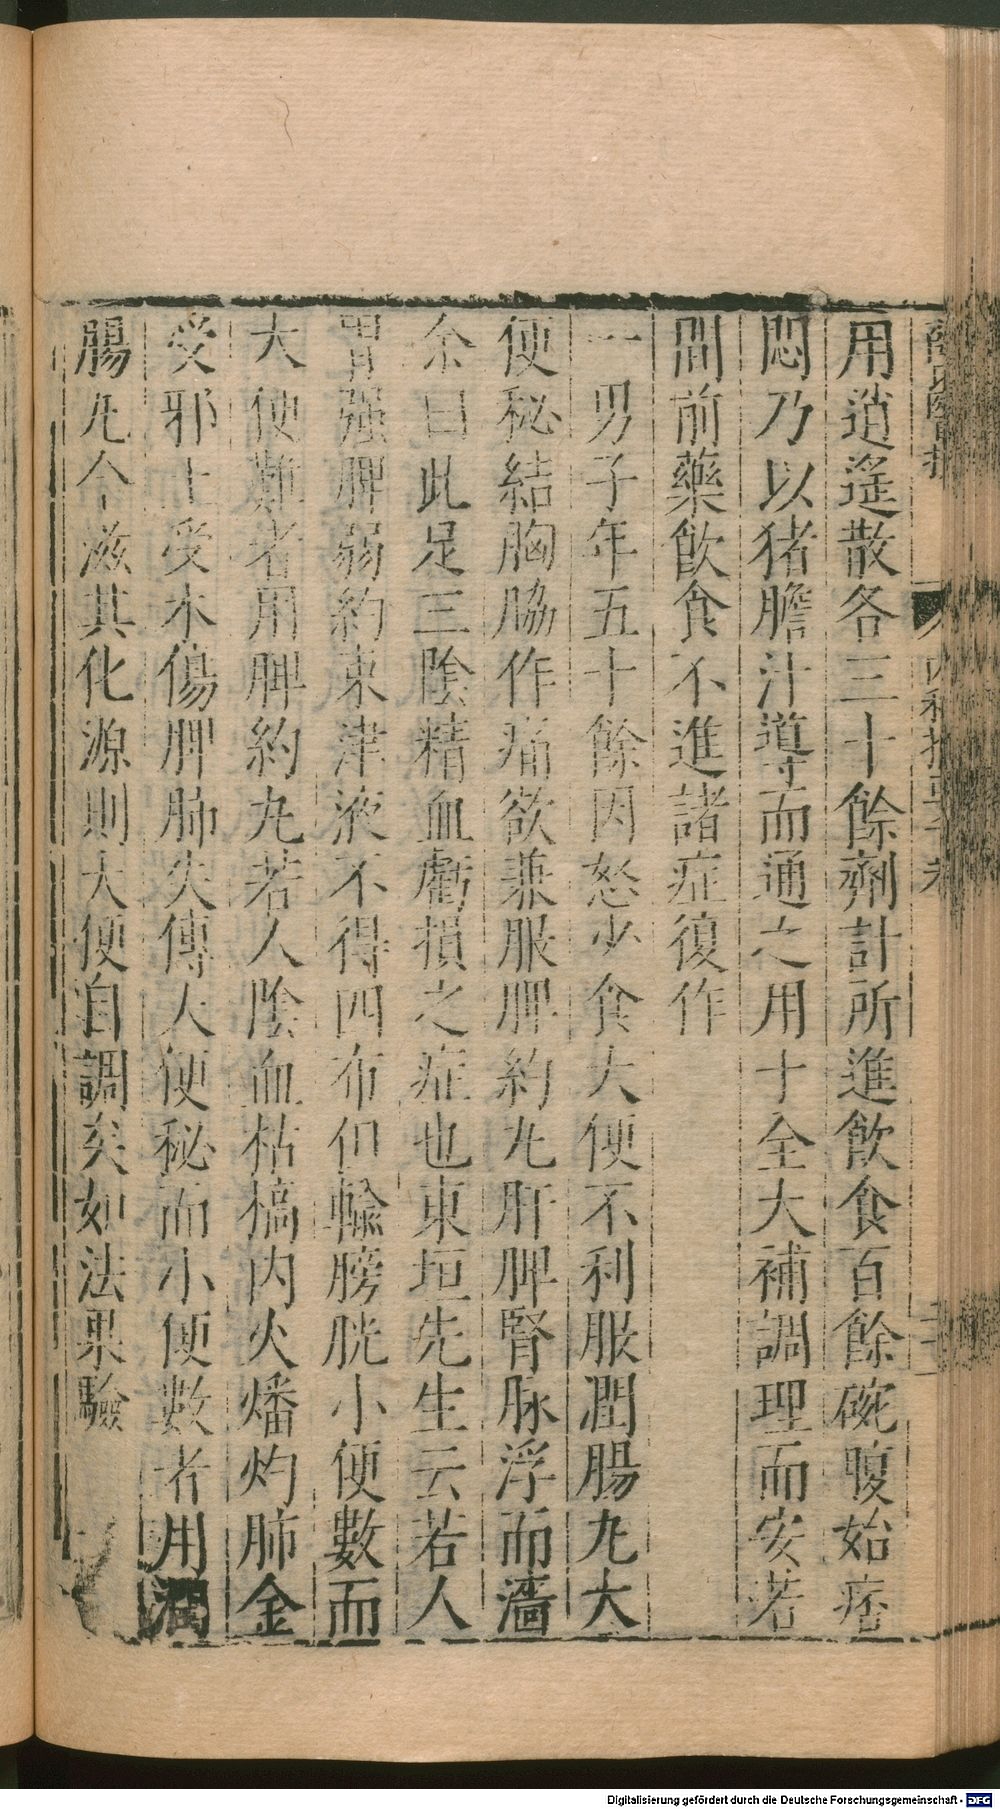 用逍遥散各三十餘劑計所進飲食百餘碗腹始痞
悶乃以猪膽汁導而通之用十全大補調理而安若
間前藥飲食不進諸症復作
一男子年五十餘因怒少食大便不利服潤腸丸大
便秘結胸脇作痛欲兼服脾約丸肝脾腎脉浮而濇
余曰此足三陰精血虧損之症也東垣先生云若人
胃强脾弱約束津液不得四布但輸膀胱小便數而
大便難者用脾約丸若人陰血枯槁内火燔灼肺金
受邪土受木傷脾肺失傳大便秘而小便數者用潤
腸丸今滋其化源則大便自調矣如法果驗
Digitalisierung gefördert durch die Deutsche Forschungsgemeinschaft - DFG